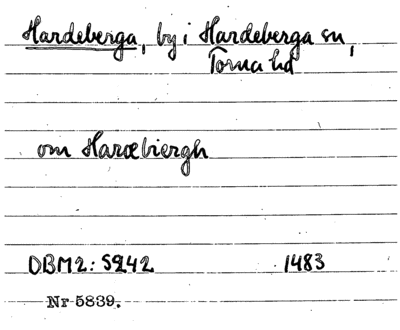 Hardeberga, by i Hardeberga sn,
Torna hd
om Haræbiergh
DBM2: S242 1483
Nr 5839.